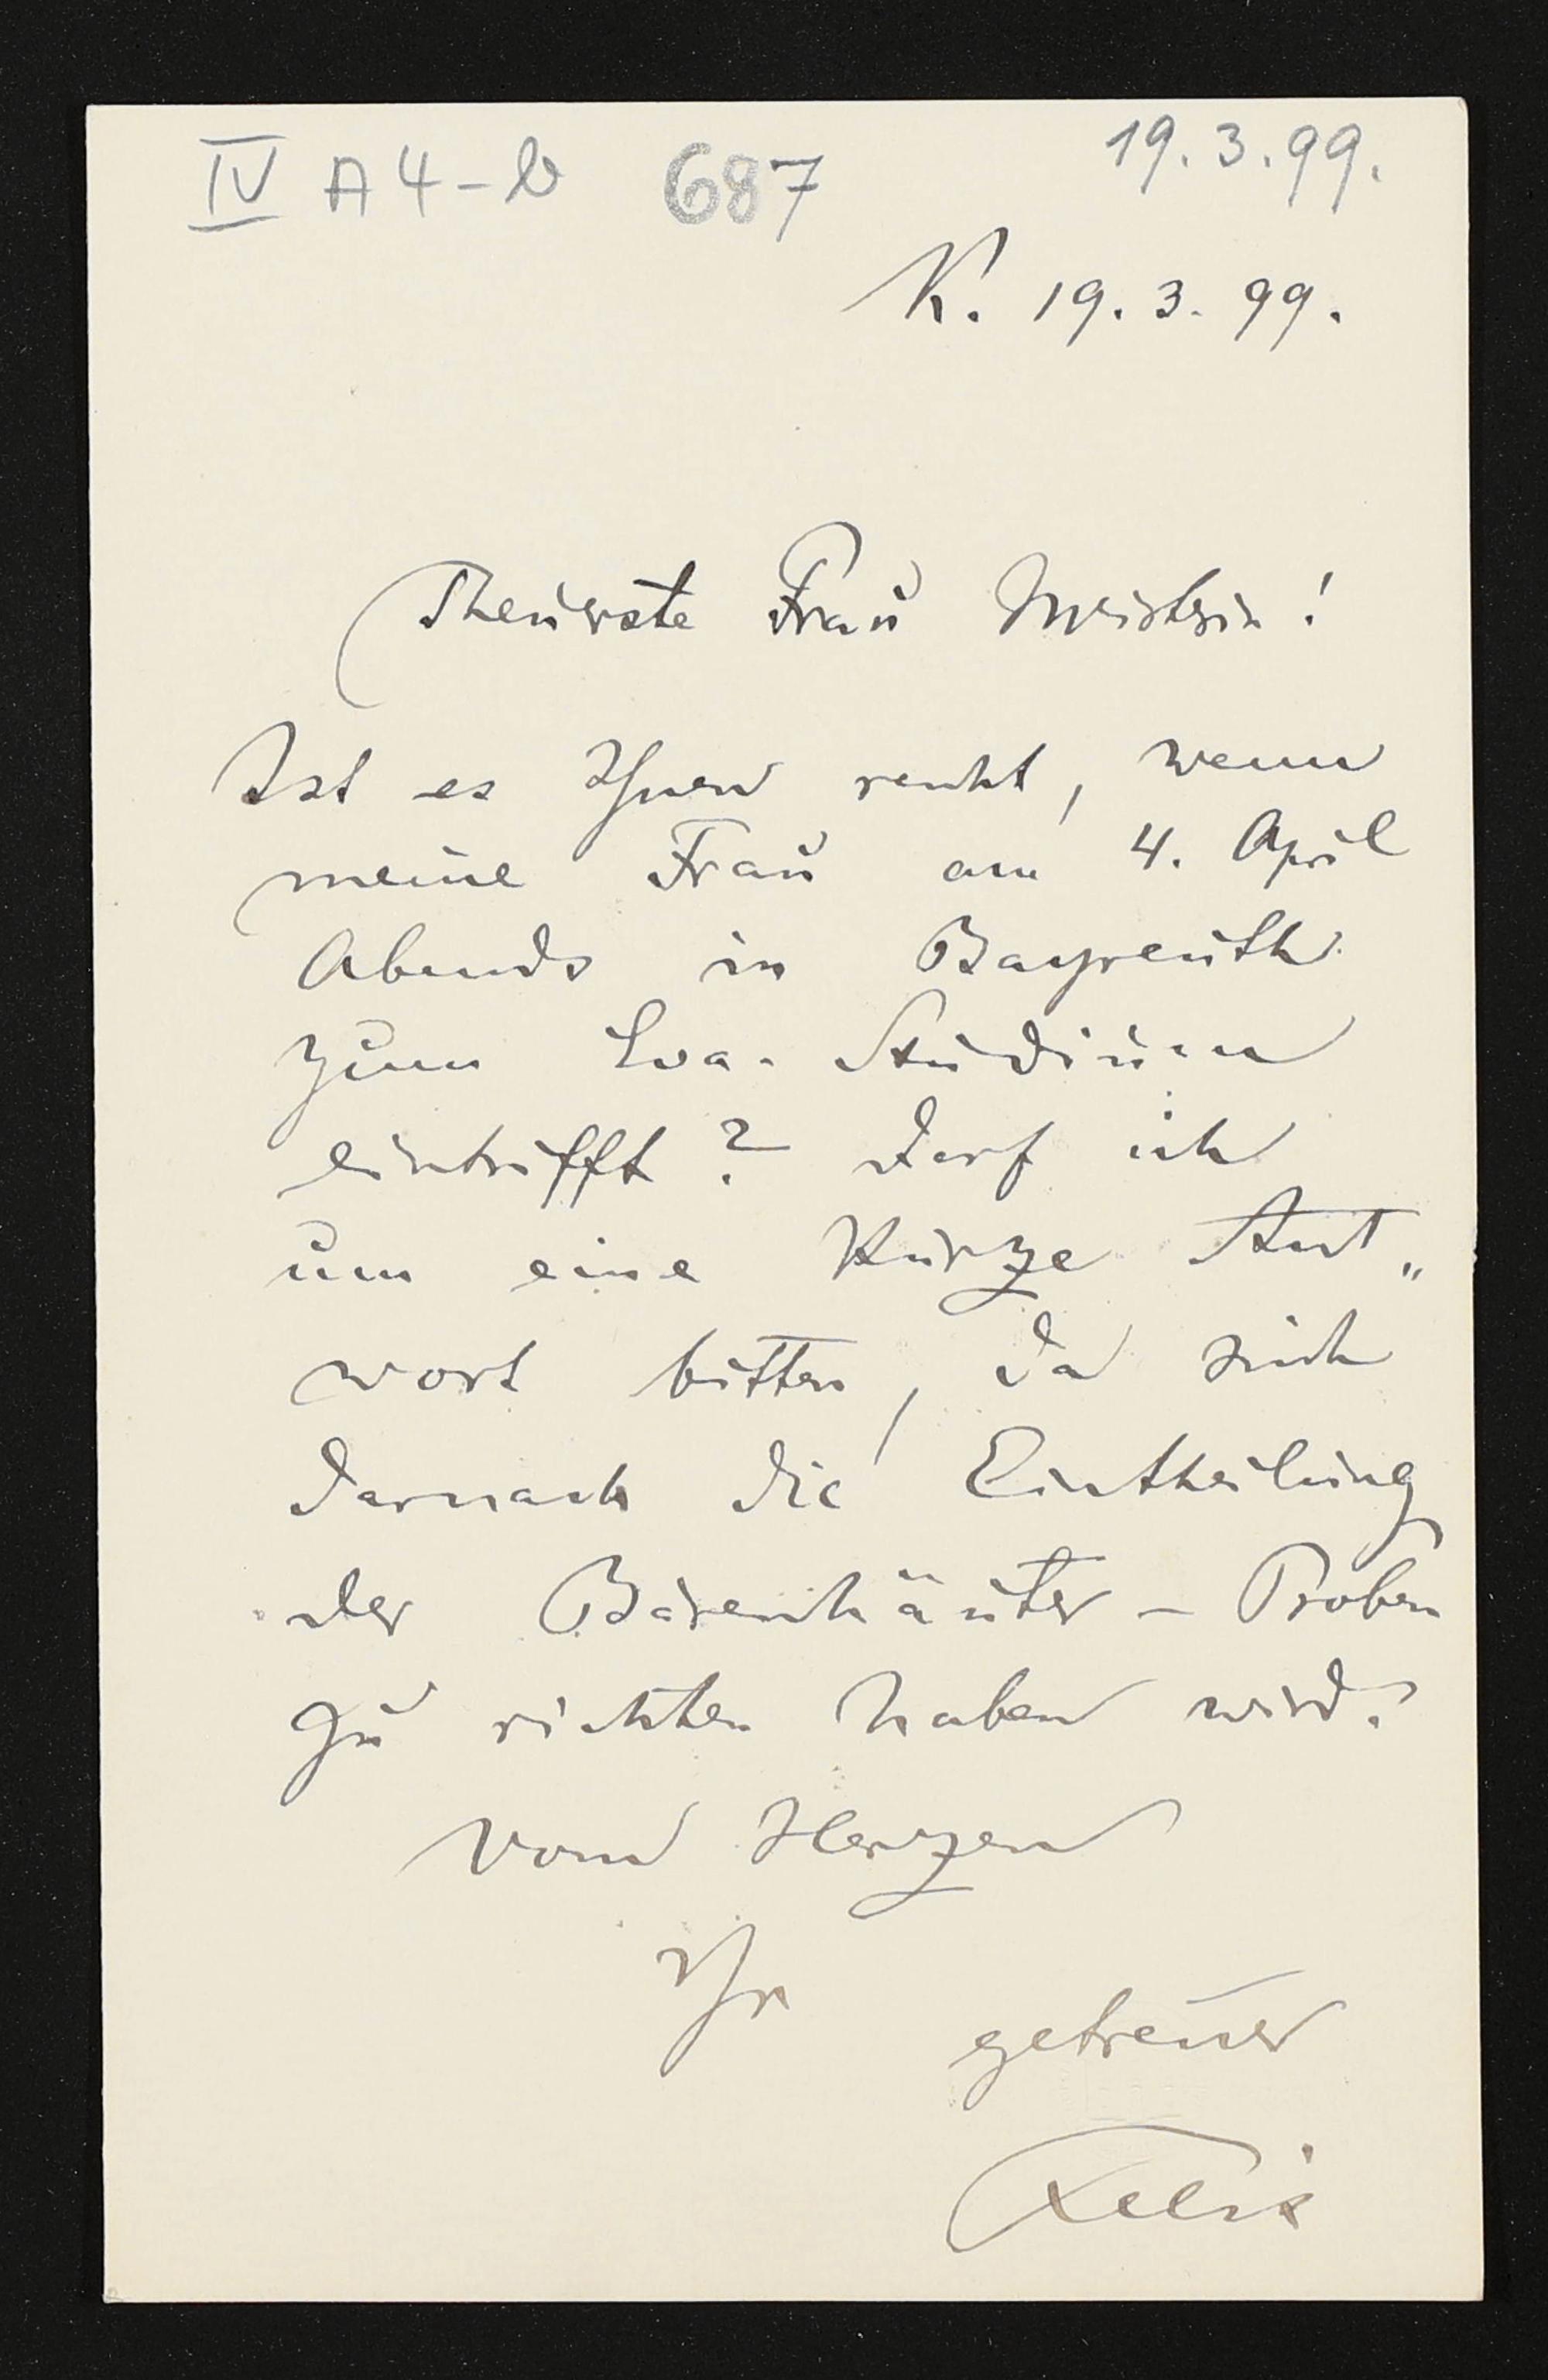 IV A 4 - b 687 19.3.99.
K. 19.3.99.
Theuerste Frau Meisterin!
Ist es Ihnen recht, wenn
meine Frau am 4. April
Abends in Bayreuth
zum Eva-Studium
eintrifft? Darf ich
um eine kurze Ant„
wort bitten, da sich
darnach die Eintheilung
der Bärenhäuter - Proben
zu richten haben wird.
Von Herzen
Ihr
getreuer
Felix